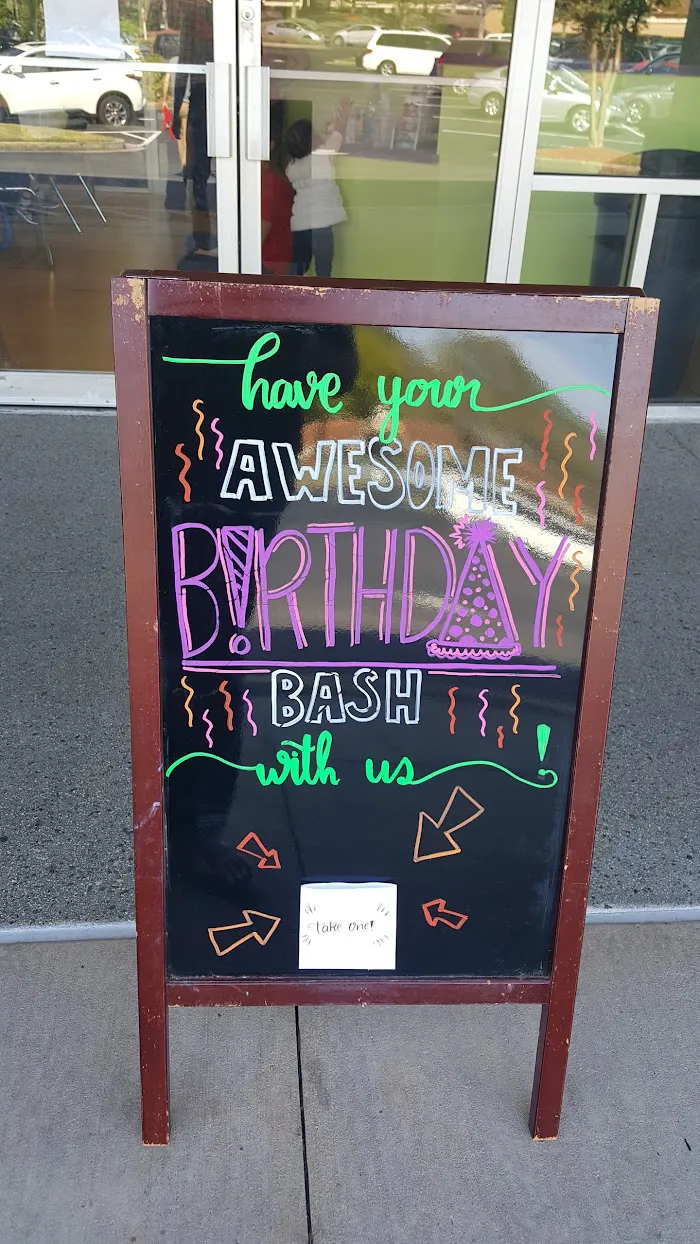 have your
AWESOME
B!RTHDAY
BASH
with us !
take one!